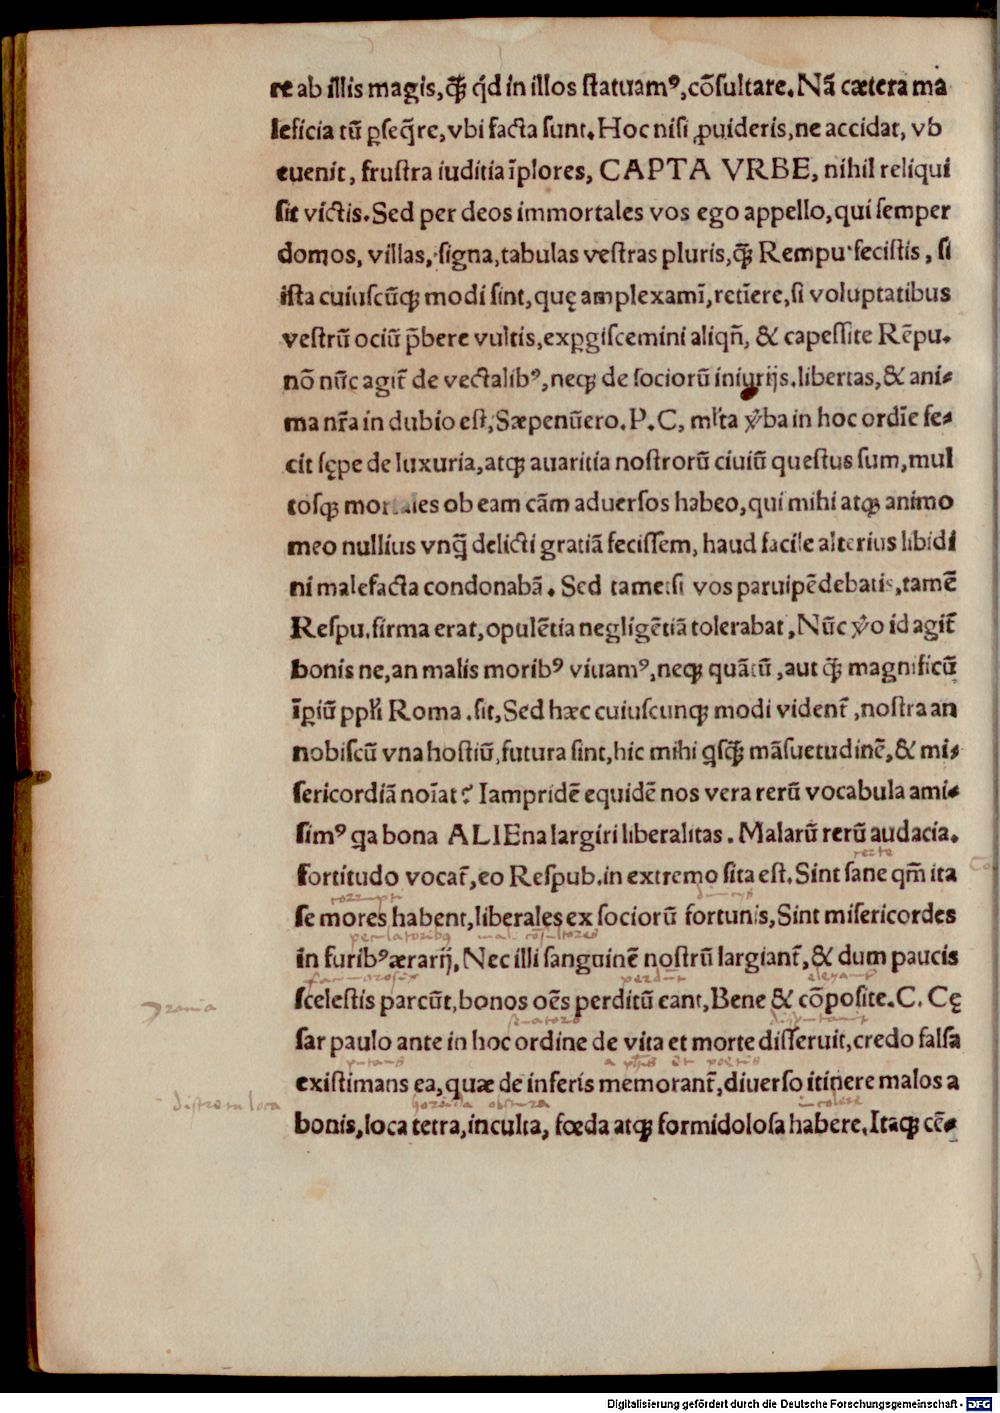 re ab illis magis, ꝙ̃ qͥd in illos ſtatuamꝰ, cõſultare. Nã cætera ma
leficia tũ ꝑſeq̃re, vbi facta ſunt. Hoc niſi ꝓuideris, ne accidat, vb
euenit, fruſtra iuditia ĩplores, CAPTA VRBE, nihil reliqui
ſit victis. Sed per deos immortales vos ego appello, qui ſemper
domos, villas, ſigna, tabulas veſtras pluris, ꝙ̃ Rempu. feciſtis, ſi
iſta cuiuſcũꝙ modi ſint, quę amplexamĩ, retĩere, ſi voluptatibus
veſtrũ ociũ p̃bere vultis, exꝑgiſcemini aliqñ, & capeſſite Rẽpu.
nõ nũc agit᷑ de vectalibꝰ, neꝙ de ſociorũ iniurijs. libertas, & ani⸗
ma nr̃a in dubio eſt, Sæpenũero. P. C, ml̃ta v̾ba in hoc ordĩe fe⸗
cit ſępe de luxuria, atꝙ auaritia noſtrorũ ciuiũ queſtus ſum, mul
toſꝙ mortales ob eam cãm aduerſos habeo, qui mihi atꝙ animo
meo nullius vnq̃ delicti gratiã feciſſem, haud facile alterius libidi
ni malefacta condonabã. Sed tametſi vos paruipẽdebatis, tamẽ
Reſpu. firma erat, opulẽtia negligẽtiã tolerabat, Nũc v̾o id agit᷑
bonis ne, an malis moribꝰ viuamꝰ, neꝙ quãtũ, aut ꝙ̃ magnificũ
ĩꝑiũ ppl̃i Roma. ſit, Sed hæc cuiuſcunꝙ modi vident᷑, noſtra an
nobiſcũ vna hoſtiũ, futura ſint, hic mihi qſꝙ̃ mãſuetudinẽ, & mi⸗
ſericordiã noĩat? Iampridẽ equidẽ nos vera rerũ vocabula ami⸗
ſimꝰ qa bona ALIEna largiri liberalitas. Malarũ rerũ audacia.
recte
fortitudo vocat᷑, eo Reſpub. in extremo ſita eſt. Sint ſane qm̃ ita
ſe mores habent, liberales ex ſociorũ fortunis, Sint miſericordes
peculatoribꝰ
in furibꝰ ærarij, Nec illi ſanguinẽ noſtrũ largiant᷑, & dum paucis
ſceleſtis parcũt, bonos oẽs perditũ eant, Bene & cõpoſite. C. Cę
ſar paulo ante in hoc ordine de vita et morte diſſeruit, credo falſa
putans
exiſtimans ea, quæ de inferis memorant᷑, diuerſo itinere malos a
horrida obscura
bonis, loca tetra, inculta, fœda atꝙ formidoloſa habere. Itaꝙ cẽ⸗
Digitalisierung gefördert durch die Deutsche Forschungsgemeinschaft - DFG